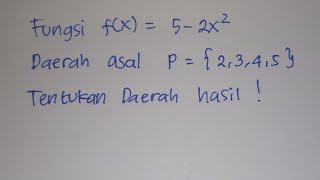 Fungsi f(x) = 5 - 2x²
Daerah asal P = {2,3,4,5}
Tentukan Daerah hasil !